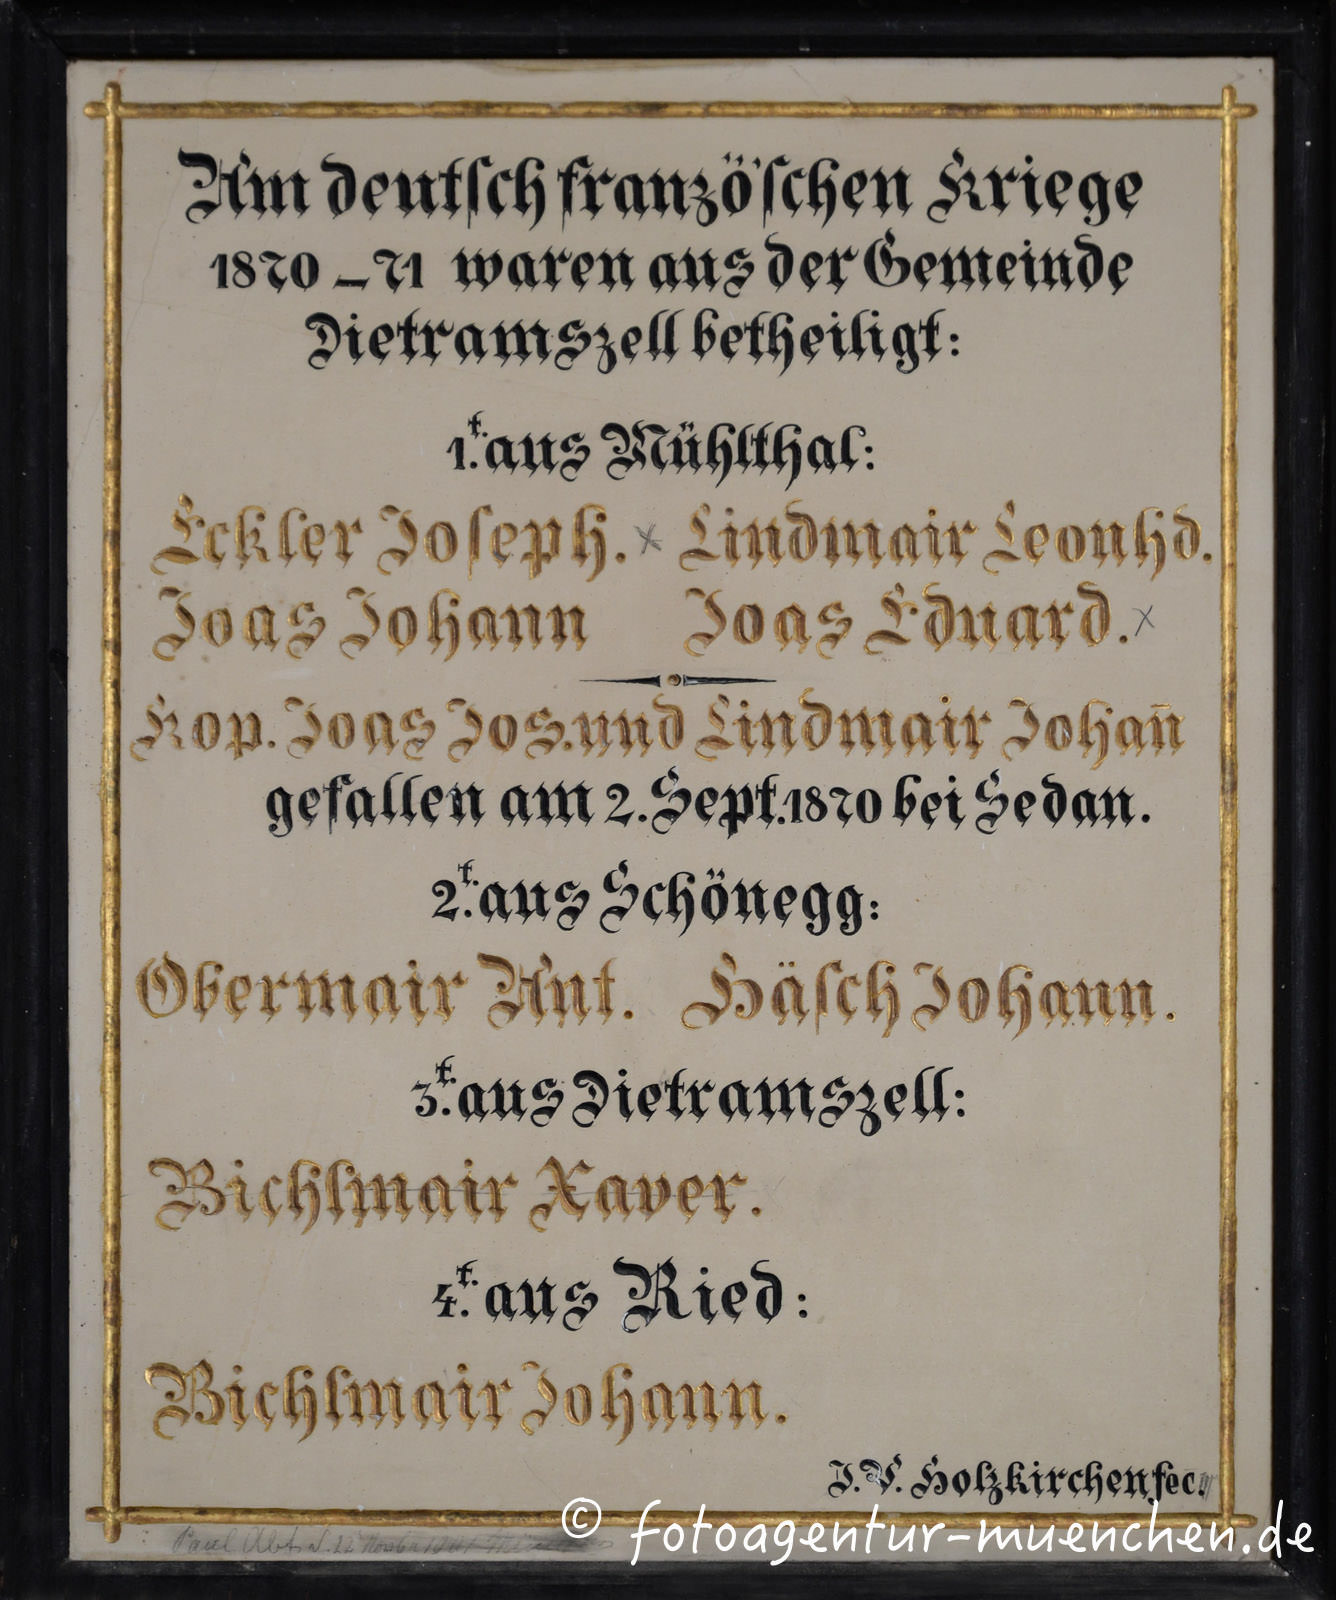 Am deutsch französchen Kriege
1870 – 71 waren aus der Gemeinde
Dietramszell betheiligt:
1t. aus Mühlthal:
Eckler Joseph. x Lindmair Leonhd.
Joas Johann Joas Eduard. x
Kop. Joas Jos. und Lindmair Johan̄
gefallen am 2. Sept. 1870 bei Sedan.
2t. aus Schönegg:
Obermair Ant. Häsch Johann.
3t. aus Dietramszell:
Bichlmair Xaver.
4t. aus Ried:
Bichlmair Johann.
J. V. Holzkirchen fec.
Paul
© fotoagentur-muenchen.de